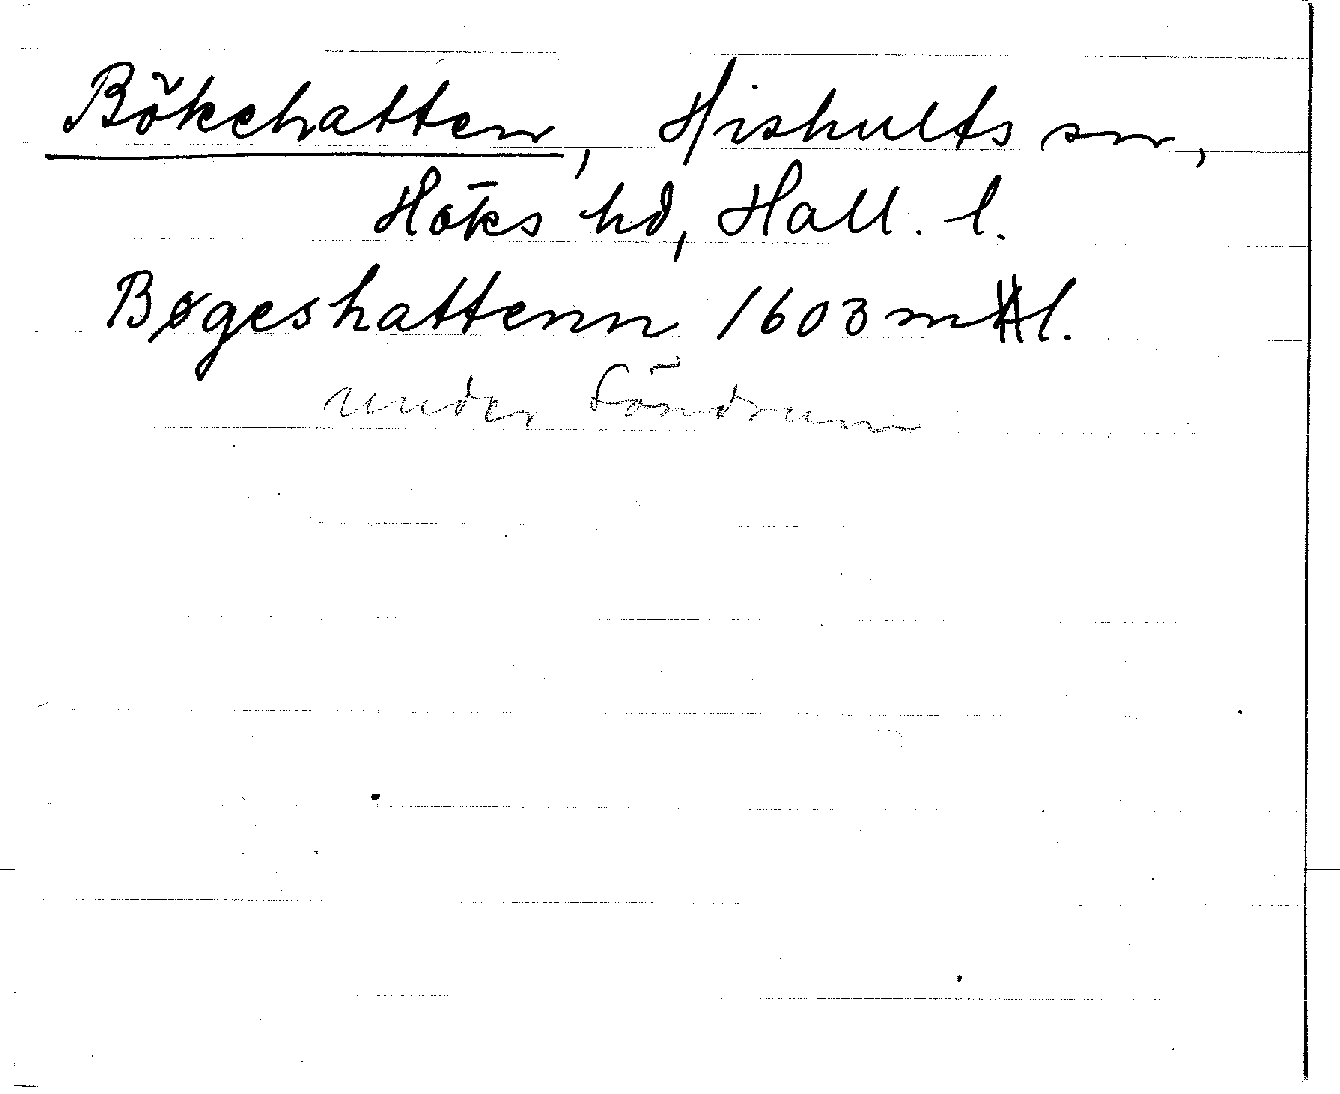 Bökehatten, Hishults sn,
Höks hd, Hall. l.
Bøgeshattenn 1603 mtl.
under Söndrum